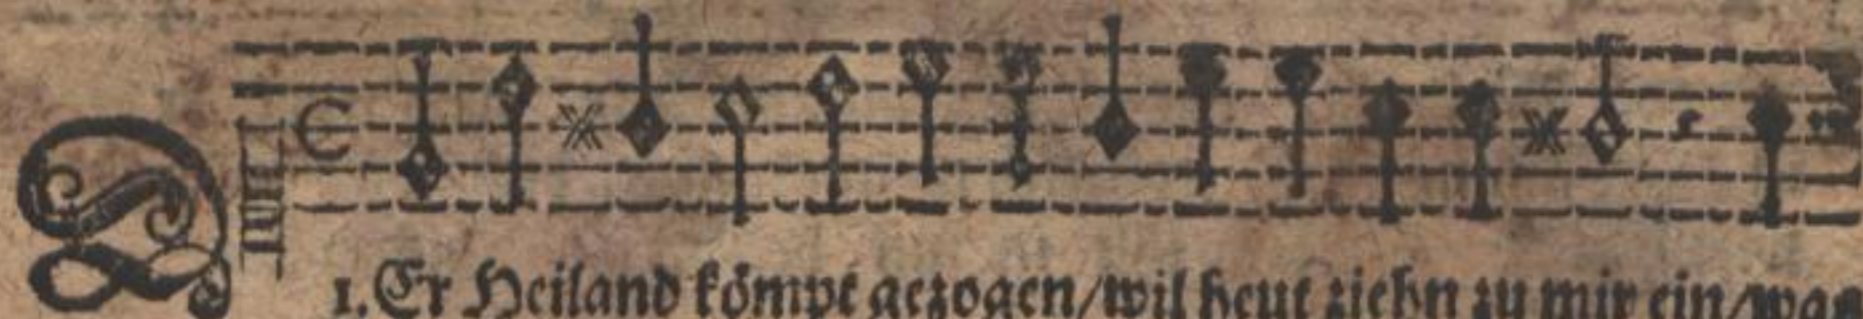 D
1. Er Heiland kömpt gezogen/wil heut ziehn zu mir ein/was